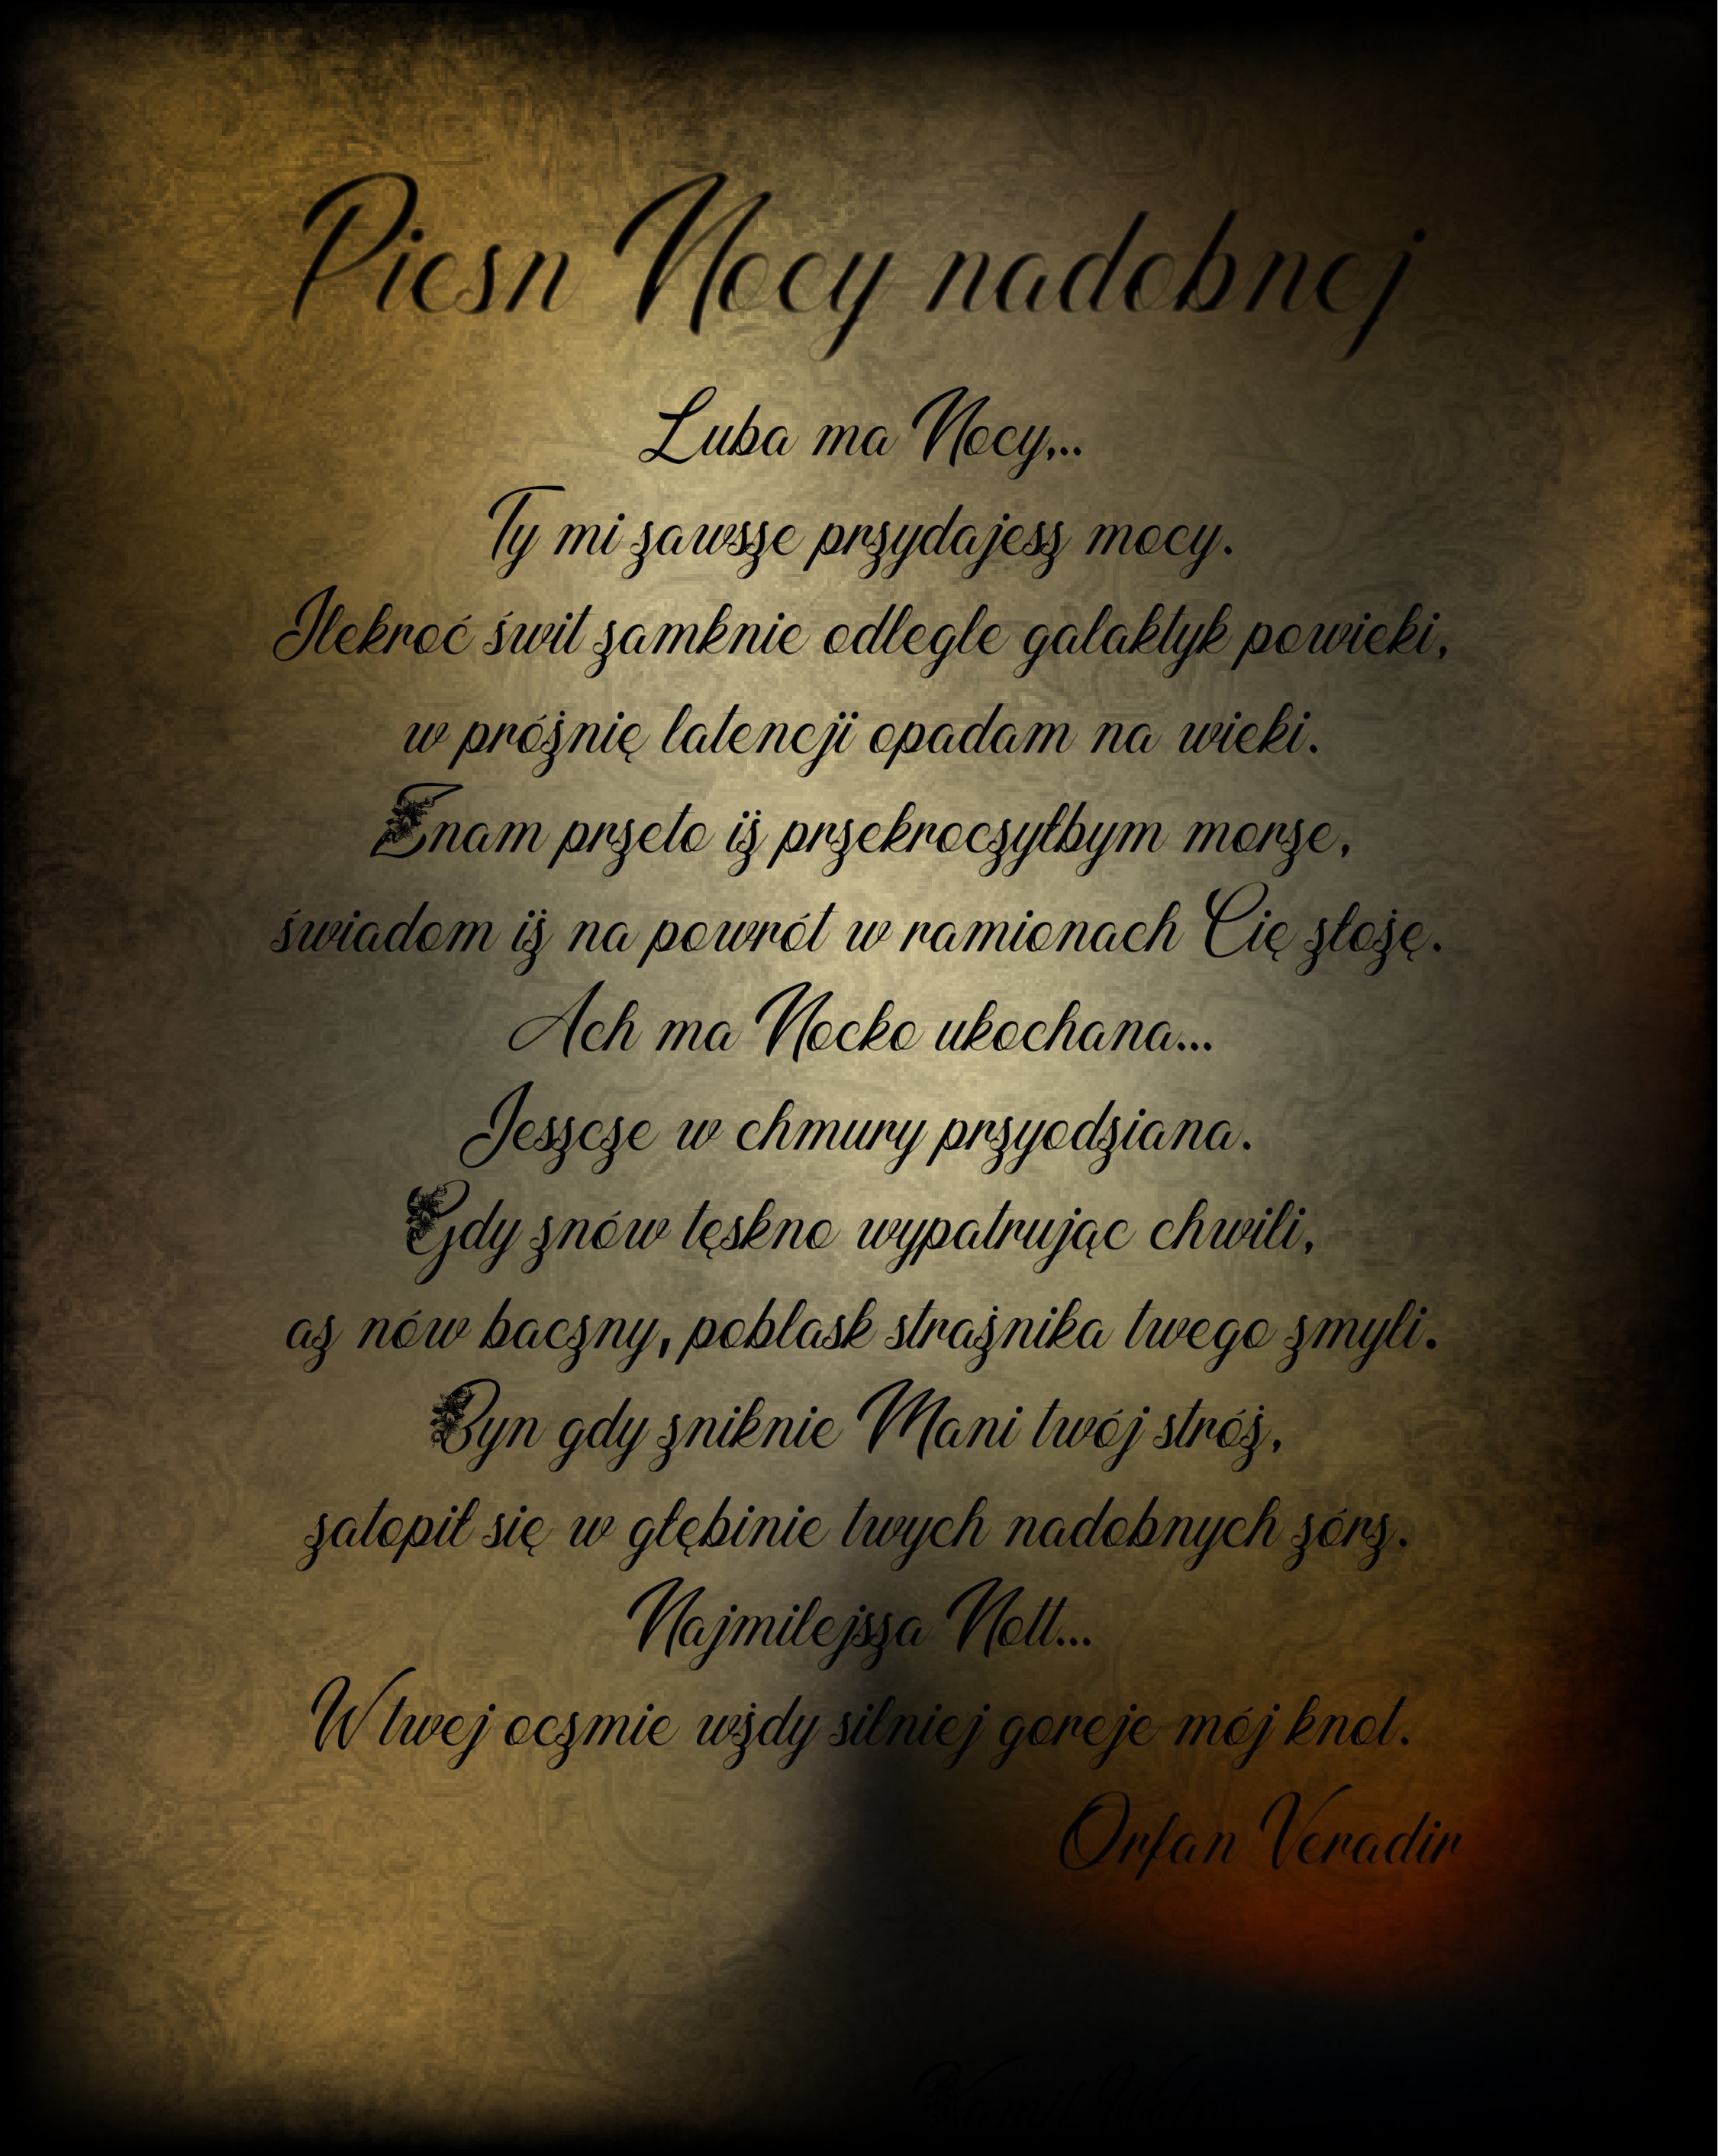 Piesn Nocy nadobnej
Luba ma Nocy,..
Ty mi zawsze przydajesz mocy.
Ilekroć świt zamknie odległe galaktyk powieki,
w próżnię latencji opadam na wieki.
Znam przeto iż przekroczyłbym morze,
świadom iż na powrót w ramionach Cię złożę.
Ach ma Nocko ukochana...
Jeszcze w chmury przyodziana.
Gdy znów tęskno wypatrując chwili,
aż nów baczny, poblask strażnika twego zmyli.
Byn gdy zniknie Mani twój stróż,
zatopił się w głębinie twych nadobnych zórz.
Najmilejsza Nott...
W twej oczmie wżdy silniej goreje mój knot.
Orfan Veradir